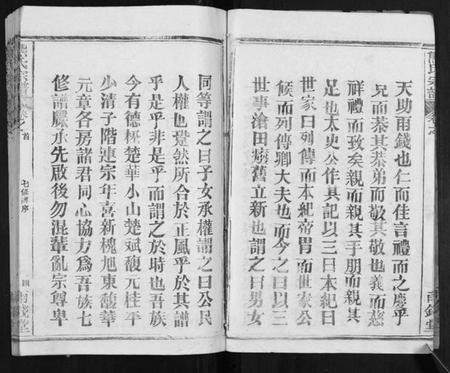 天助雨錢也仁而佳言禮而之慶乎
兄而恭其恭弟而敬其敬也義而慈
祥禮而致矣親而親其手朋而親其
足也太史公作其記以三日本紀曰
世家曰列傳而本紀帝冑而世家公
候而列傳卿大夫也而今之曰以三
世事滄田廢舊立新也謂之曰男女
同等謂之曰子女承權謂之曰公民
人權也豈然所合於正風乎於其譜
乎是乎非是乎而謂之於時也吾族
今有德楚華小山楚斌馥元桂平
少清子階連宗年喜新槐旭東馥華
元章各房諸君同心協力為吾族七
修譜牒承先啟後勿混輩亂宗尊卑
七修譜序
四
雨錢堂